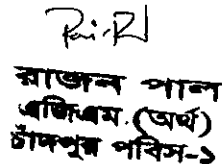 রাজন পাল
এজিএম. (অর্থ)
চাঁদপুর পবিস-১